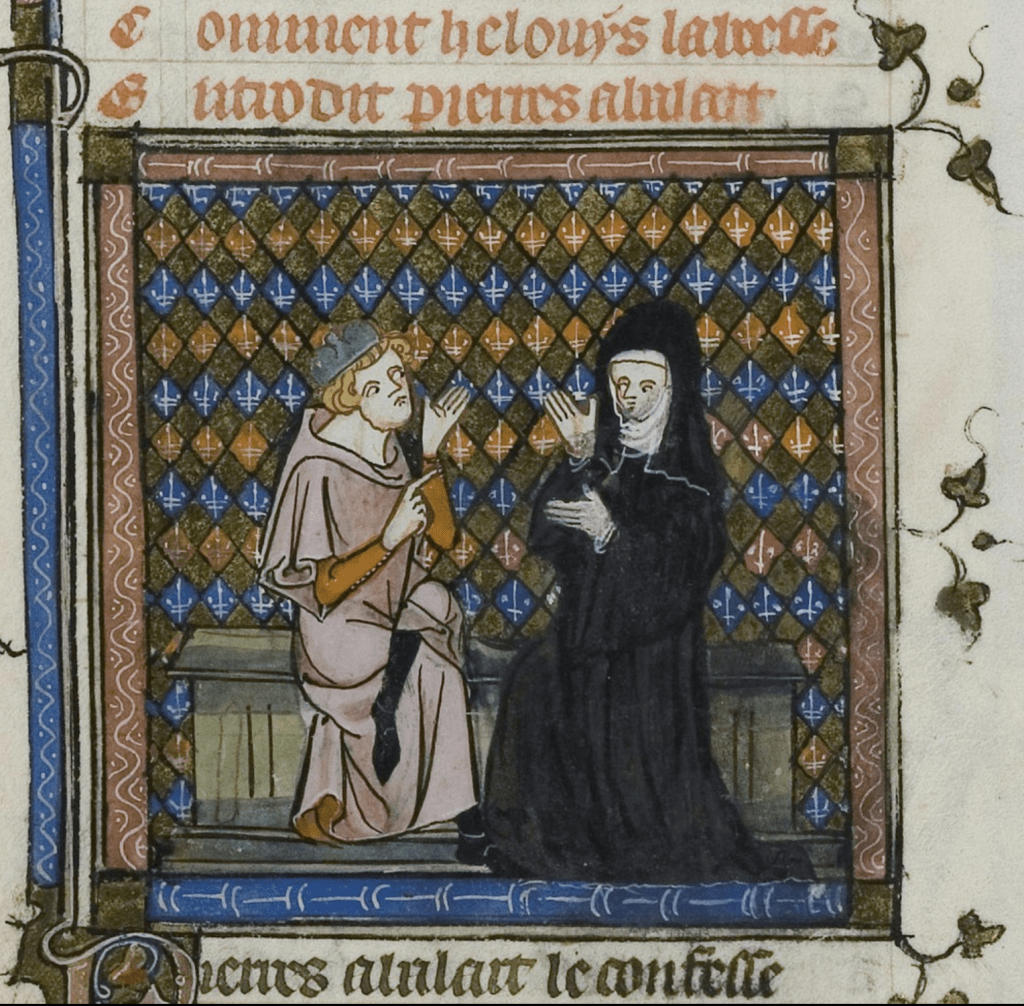 Comment helouys labeesse
Entrodit pierres abalart
Pierres abalart le confesse